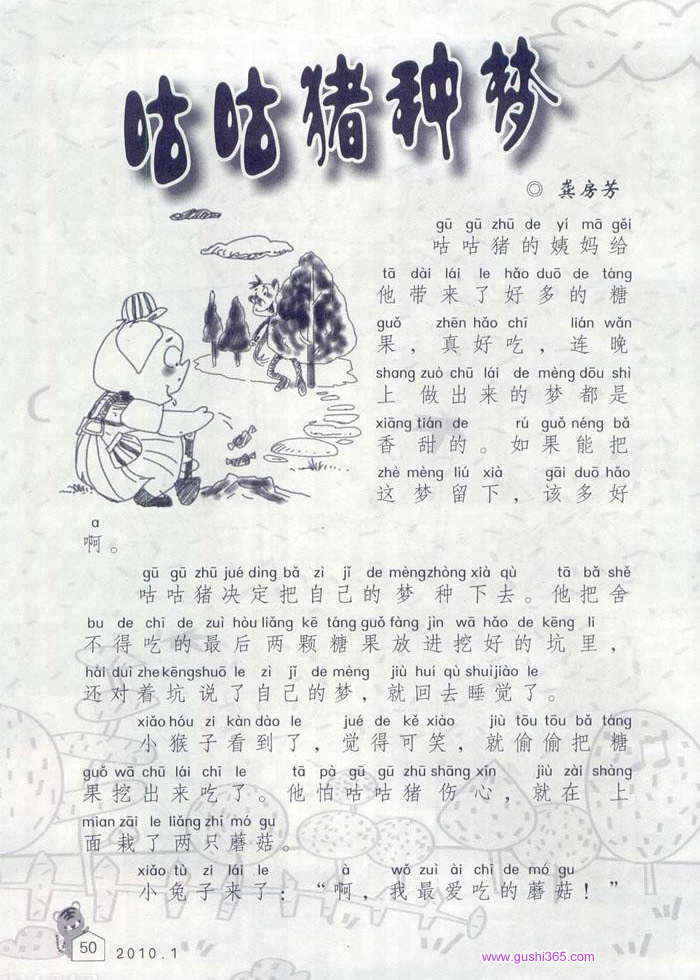 咕咕猪种梦
◎ 龚房芳
gū gū zhū de yí mā gěi
咕咕猪的姨妈给
tā dài lái le hǎo duō de táng
他带来了好多的糖
guǒ zhēn hǎo chī lián wǎn
果，真好吃，连晚
shang zuò chū lái de mèng dōu shì
上做出来的梦都是
xiāng tián de rú guǒ néng bǎ
香甜的。如果能把
zhè mèng liú xià gāi duō hǎo
这梦留下，该多好
a
啊。
gū gū zhū jué dìng bǎ zì jǐ de mèng zhòng xià qù tā bǎ shě
咕咕猪决定把自己的梦种下去。他把舍
bu de chī de zuì hòu liǎng kē táng guǒ fàng jìn wā hǎo de kēng li
不得吃的最后两颗糖果放进挖好的坑里，
hái duì zhe kēng shuō le zì jǐ de mèng jiù huí qù shuì jiào le
还对着坑说了自己的梦，就回去睡觉了。
xiǎo hóu zi kàn dào le jué de kě xiào jiù tōu tōu bǎ táng
小猴子看到了，觉得可笑，就偷偷把糖
guǒ wā chū lái chī le tā pà gū gū zhū shāng xīn jiù zài shàng
果挖出来吃了。他怕咕咕猪伤心，就在上
mian zāi le liǎng zhī mó gu
面栽了两只蘑菇。
xiǎo tù zi lái le à wǒ zuì ài chī de mó gu
小兔子来了：“啊，我最爱吃的蘑菇！”
50 2010.1
www.gushi365.com